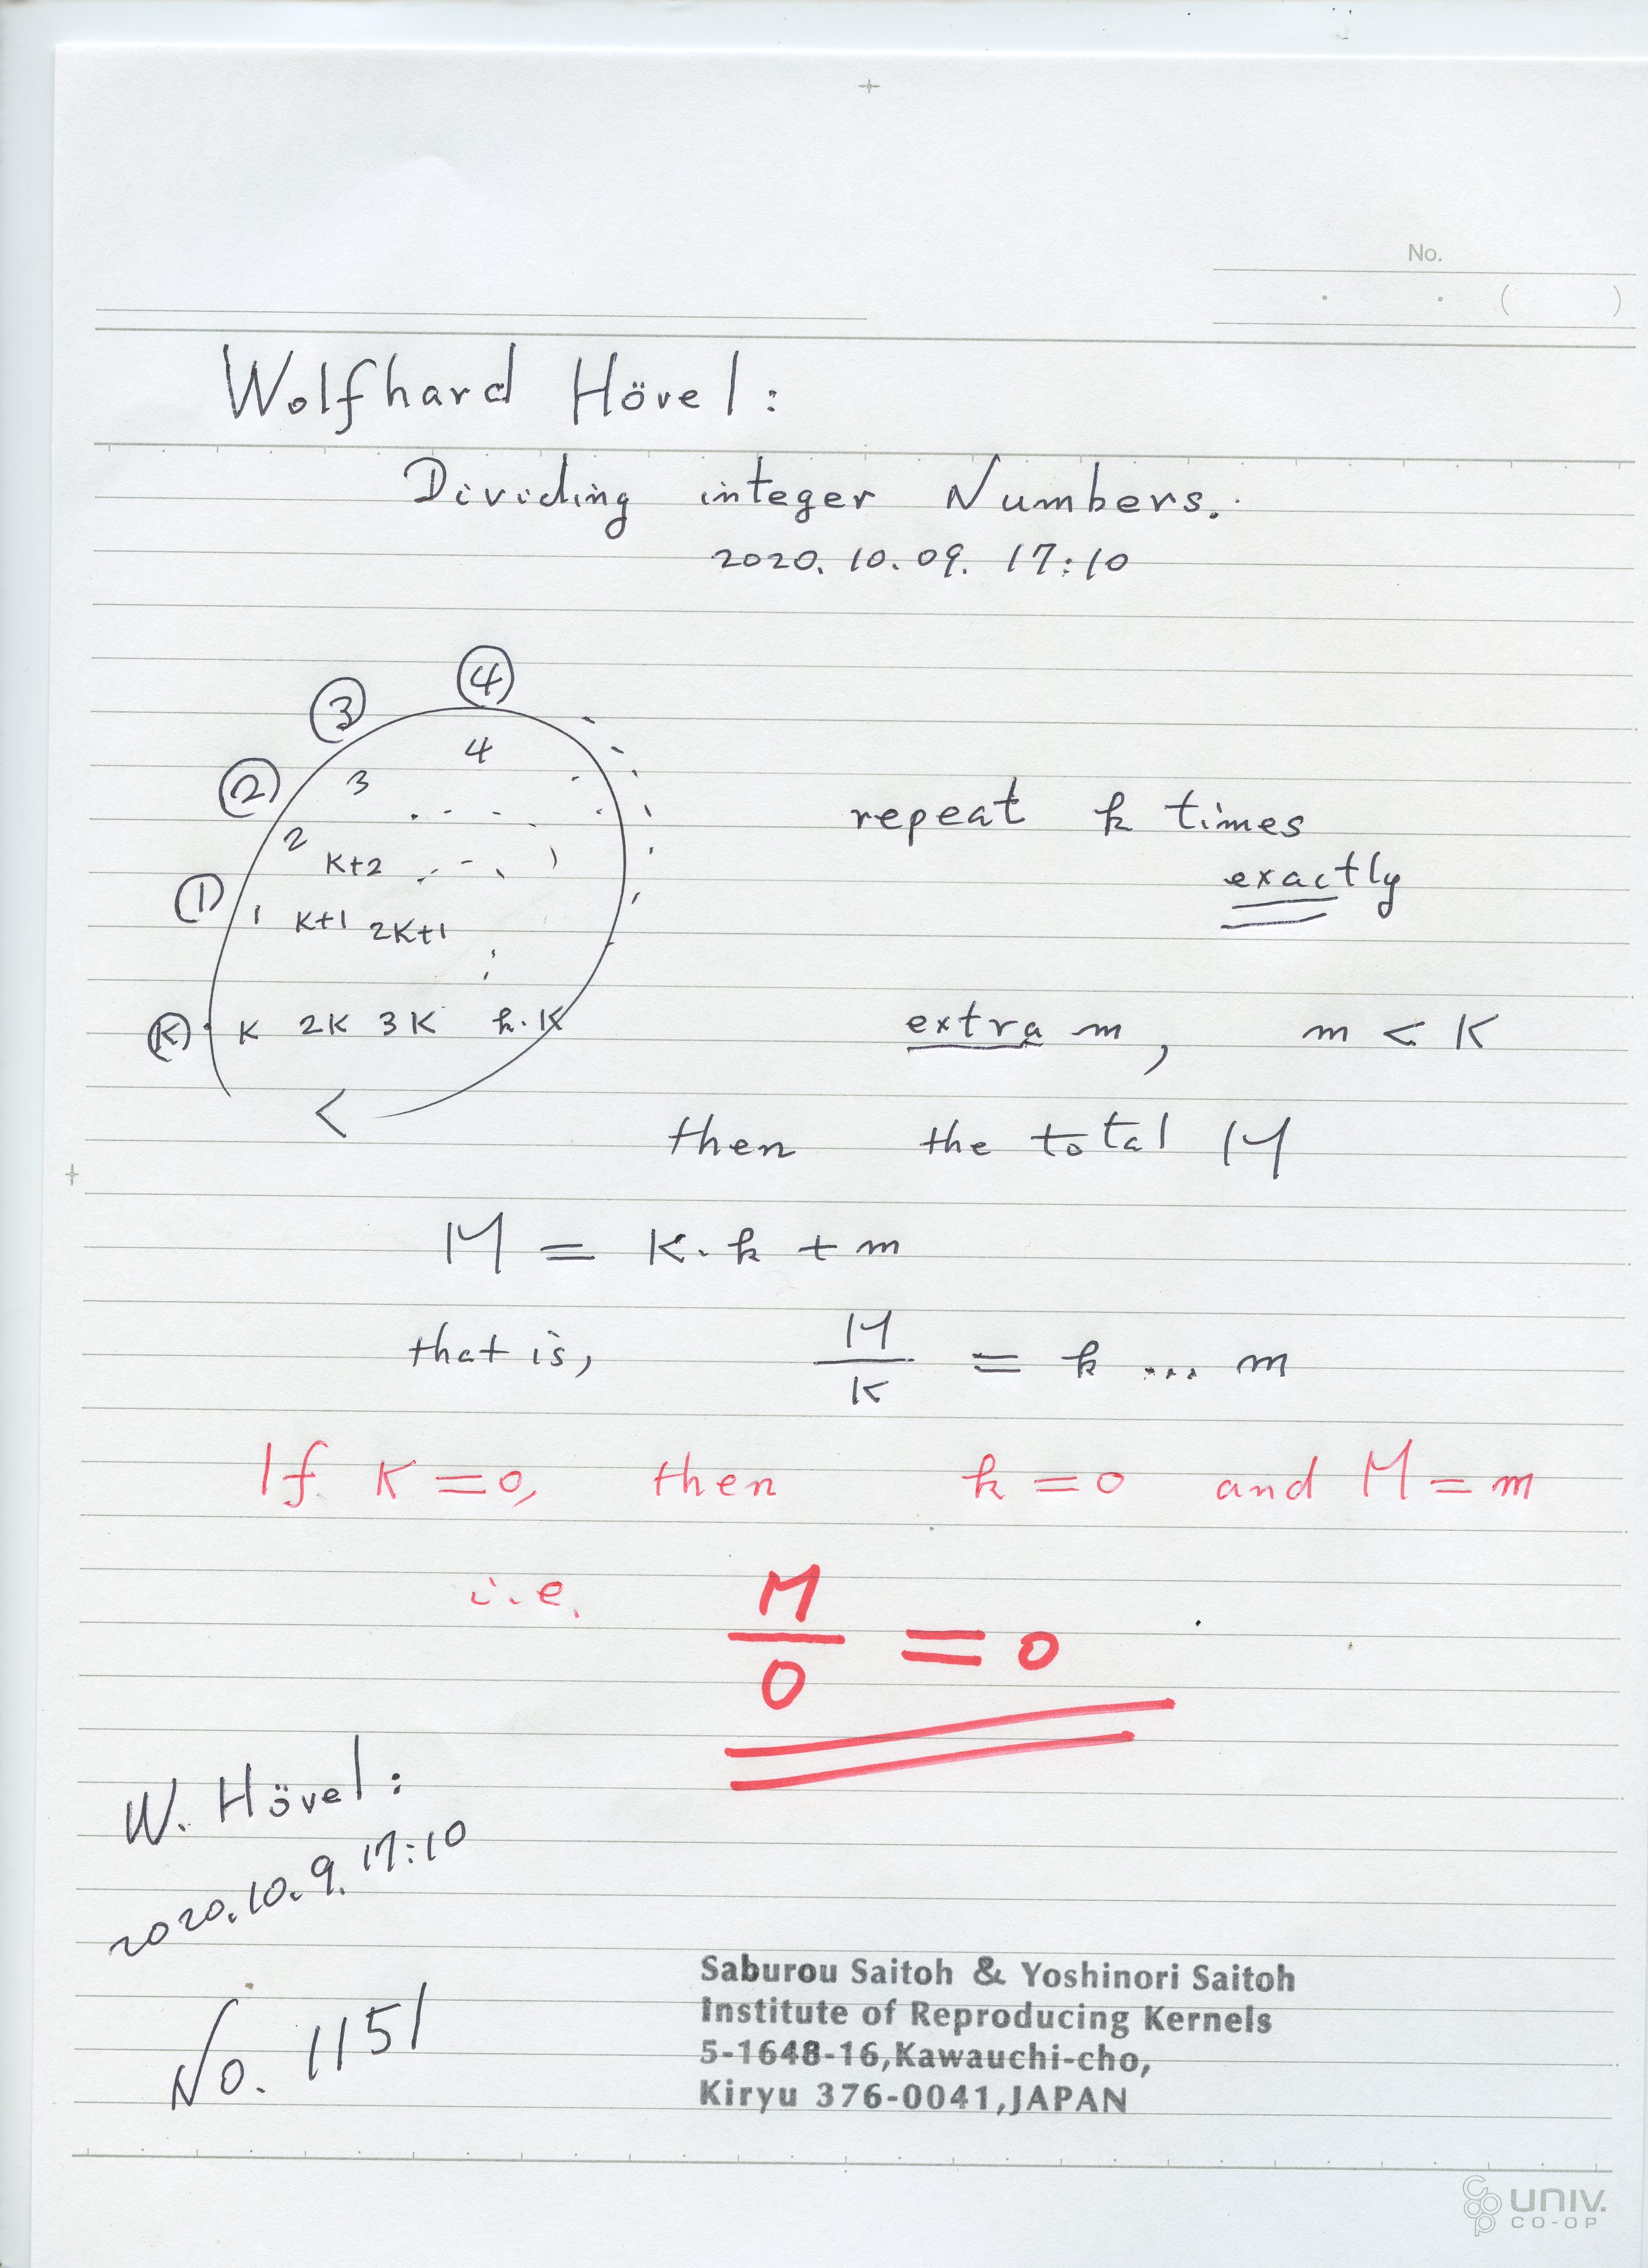 No.
( )
Wolfhard Hövel:
Dividing integer Numbers.
2020. 10. 09. 17:10
④
③
4
②
3
2
K+2
①
1 K+1 2K+1
Ⓚ K 2K 3K k·K
repeat k times
exactly
extra m, m < K
then the total M
M = K·k + m
that is, M/K = k ... m
If K = 0, then k = 0 and M = m
i.e. M/0 = 0
W. Hövel:
2020.10.9. 17:10
No. 1151
Saburou Saitoh & Yoshinori Saitoh
Institute of Reproducing Kernels
5-1648-16,Kawauchi-cho,
Kiryu 376-0041,JAPAN
coop UNIV.
CO-OP